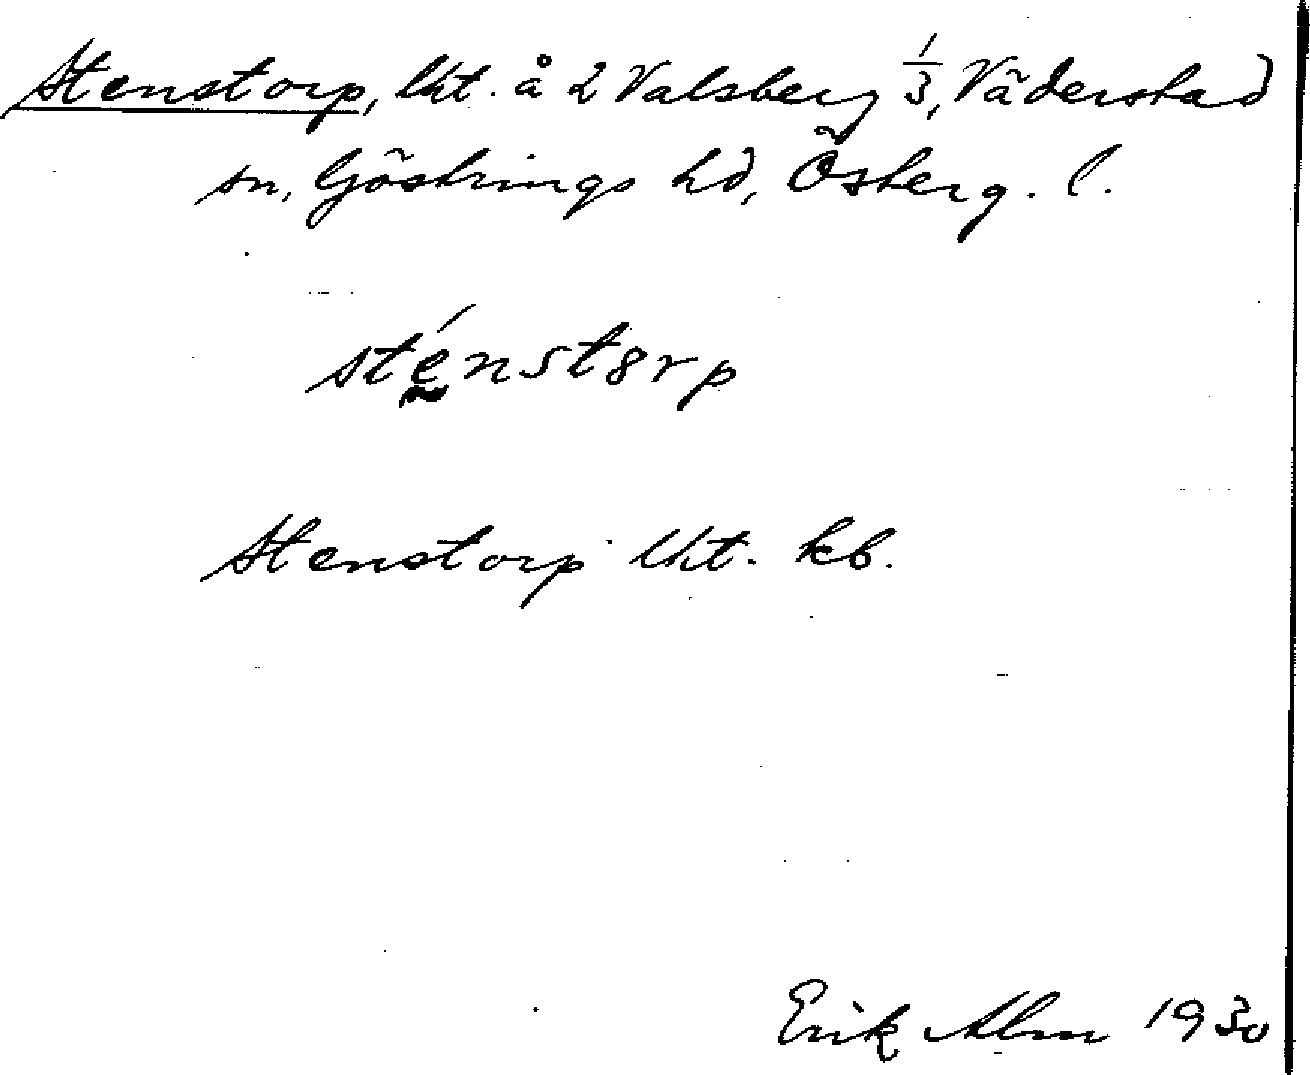 Stenstorp, lht. å 2 Valsberg 1/3, Väderstad
sn, Göstrings hd, Österg. l.
stḛ́nst8rp
Stenstorp lht. kb.
Erik Alm 1930